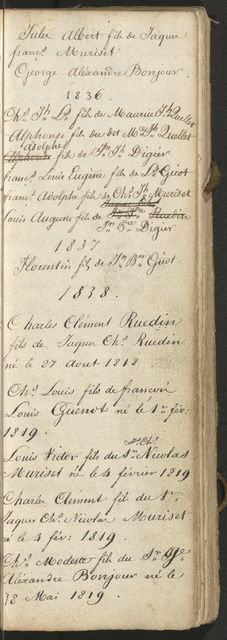 Jules Albert fils de Jaques
franç. Muriset
George Aléxandre Bonjour.
1836.
Ch.s Fh. Ls. fils du Maurice Fh. Quellet
Alphonse fils du dot Mce Fh. Quellet
Adolphe
Alphonse fils de Fs. Fh. Digier
franç. Louis Eugène fils de Ls. Guot
franç. Adolphe fils de Chs. Fh. Muriset
Louis Auguste fils de Ruedin
Digier
1837.
Florentin fils de Jn. Bte. Guot.
1838.
Charles Clément Ruedin
fils de Jaques Chs. Ruedin
né le 27 Aout 1818.
Chs. Louis fils de françois
Louis Guenot né le 1er fév.
1819.
Louis Victor fils du Sr. Nicolas
Muriset né le 4 février 1819
Charles Clément fils du Sr.
Jaques Chs. Nicolas Muriset
né le 4 fév. 1819.
Chs. Modeste fils du Sr. Ge
Aléxandre Bonjour né le
Mai 1819.